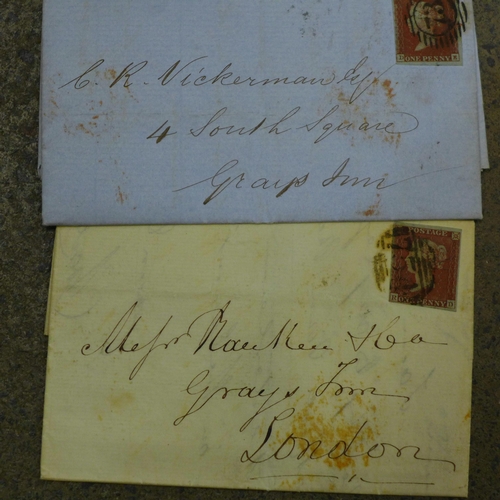 ONE PENNY
C. R. Vickerman Esq
4 South Square
Grays Inn
POSTAGE
ONE PENNY
Messrs & Co
Grays Inn
London